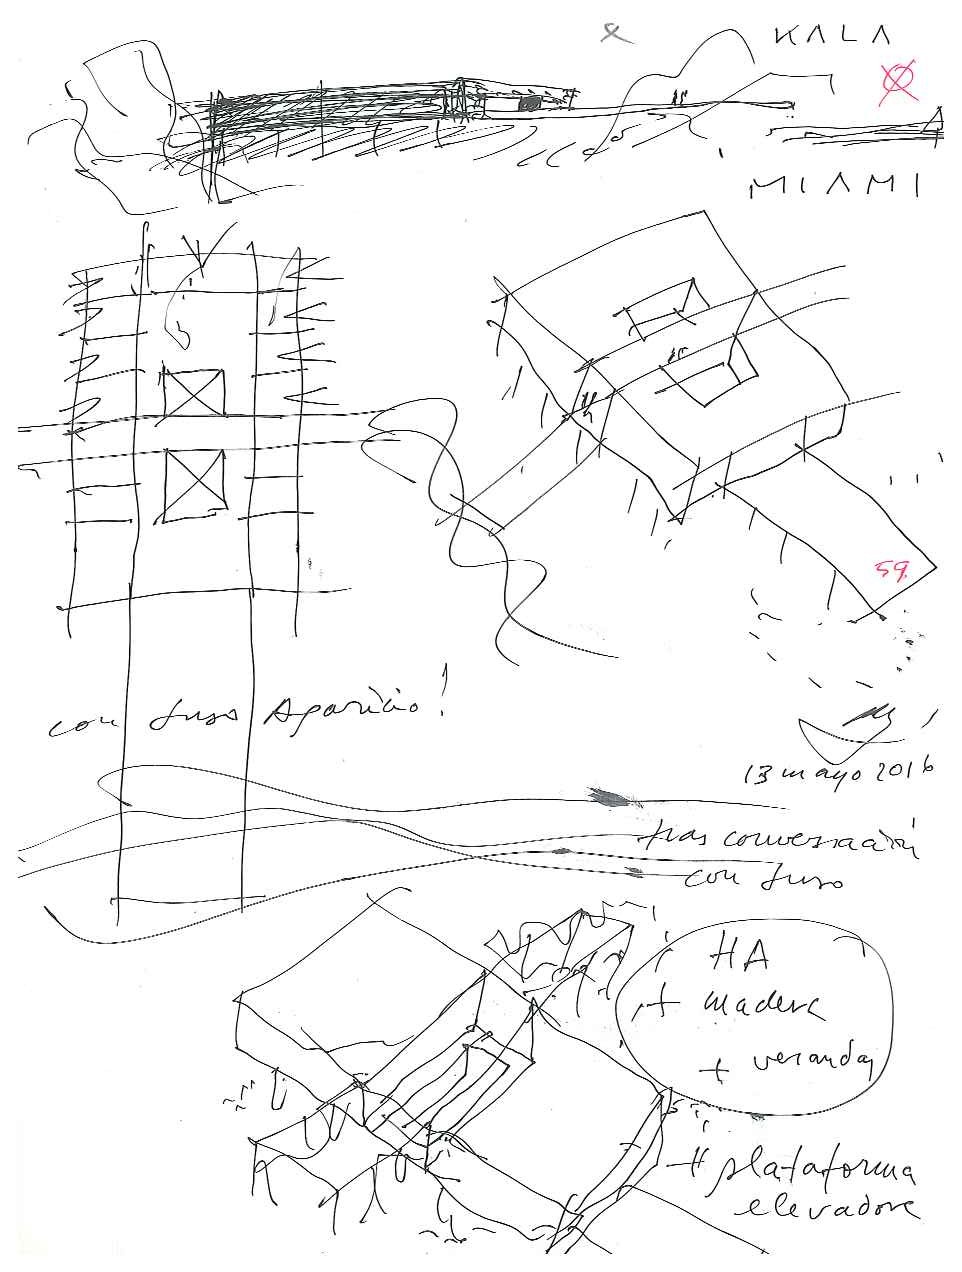 KALA
MIAMI
59.
con fuso Aparicio!
13 mayo 2016
tras conversación
con fuso
HA
+ madera
+ veranda
+ plataforma
elevadora